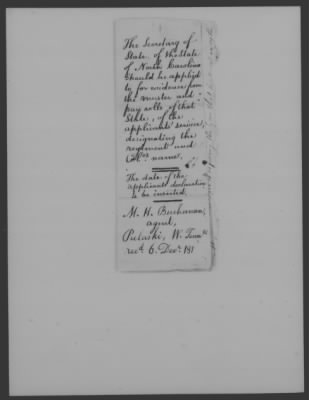 The Secretary of
State of the State
of North Carolina
should be applied
to for evidence from
the muster and
pay rolls of that
State, of the
applicant's service,
designating the
regiment and
names.
The date of the
applicant's declaration
to be inserted.
M. H. Buchanan,
agent,
Pulaski, W. Tenn
rec'd 6. Decr. 181